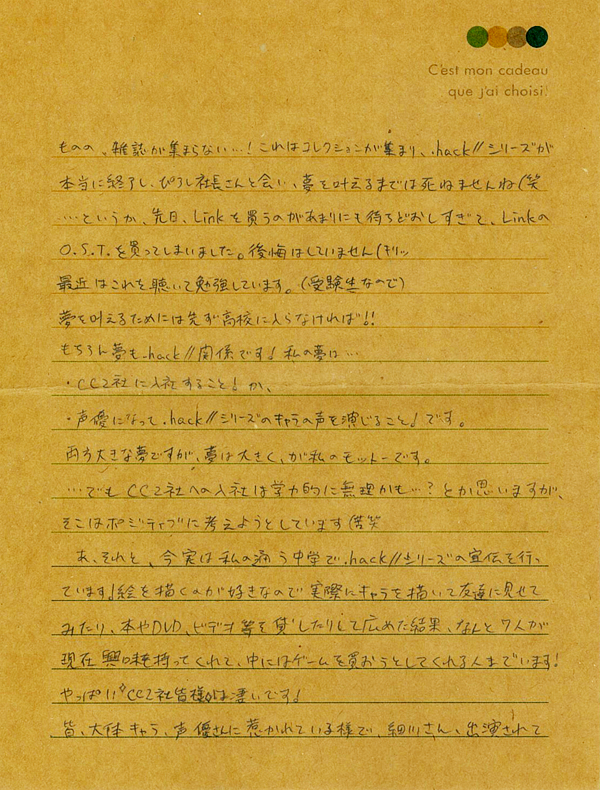 C'est mon cadeau
que j'ai choisi.
ものの、雑誌が集まらない…!これはコレクションが集まり、.hack//シリーズが
本当に終了し、ぴろし社長さんと会い、夢を叶えるまでは死ねませんね(笑
…というか、先日、Linkを買うのがあまりにも待ちどおしすぎて、Linkの
O.S.T.を買ってしまいました。後悔はしていません(キリッ
最近はこれを聴いて勉強しています。(受験生なので)
夢を叶えるためには先ず高校に入らなければ!!
もちろん夢も.hack//関係です!私の夢は…
・CC2社に入社すること!か、
・声優になって.hack//シリーズのキャラの声を演じること!です。
両方大きな夢ですが、夢は大きく、が私のモットーです。
…でもCC2社への入社は学力的に無理かも…?とか思いますが、
そこはポジティブに考えようとしています(苦笑
あ、それと、今実は私の通う中学で.hack//シリーズの宣伝を行っ
ています!絵を描くのが好きなので実際にキャラを描いて友達に見せて
みたり、本やDVD、ビデオ等を貸したりして広めた結果、なんと7人が
現在興味を持ってくれて、中にはゲームを買おうとしてくれる人まています!
やっぱりCC2社皆様は凄いです!
皆、大体キャラ、声優さんに惹かれている様で、細川さん、出演されて